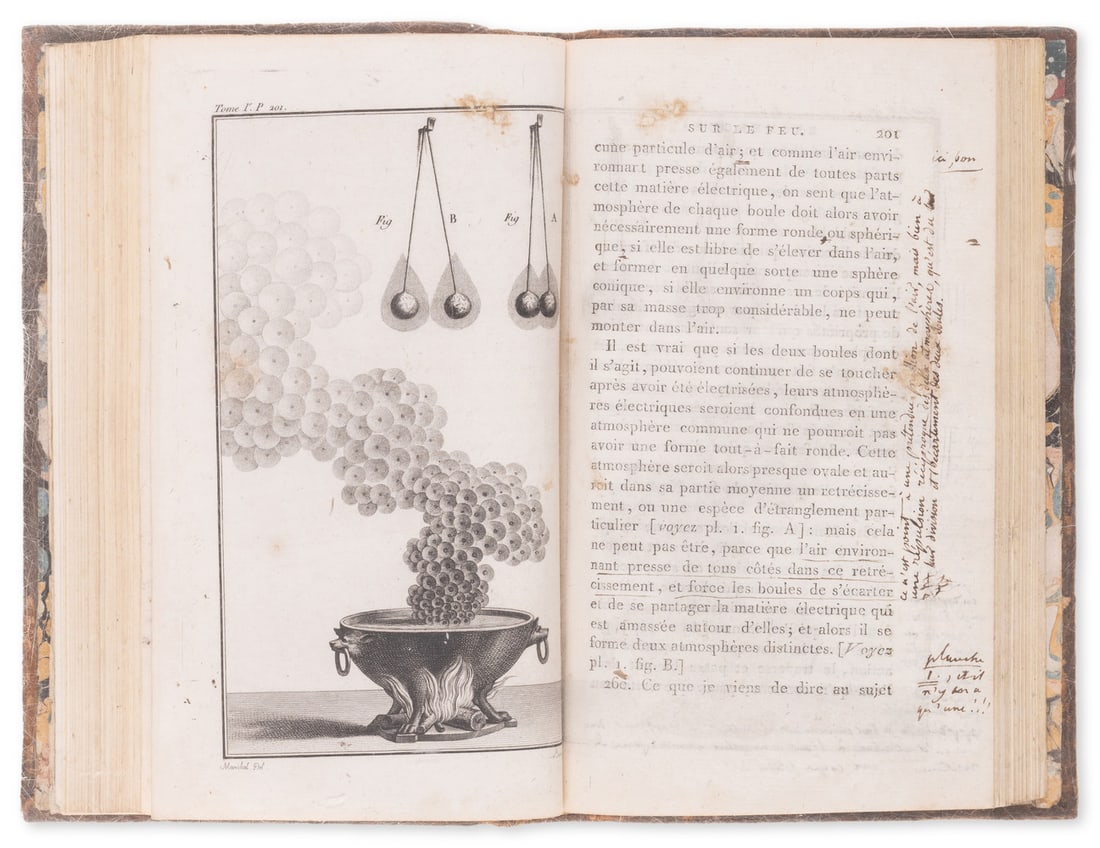 Tome Iʳ. P. 201.
Fig B Fig A
Marchal Del
SUR LE FEU. 201
cune particule d'air; et comme l'air envi-
ronnant presse également de toutes parts
cette matière électrique, on sent que l'at-
mosphère de chaque boule doit alors avoir
nécessairement une forme ronde ou sphéri-
que, si elle est libre de s'élever dans l'air,
et former en quelque sorte une sphère
conique, si elle environne un corps qui,
par sa masse trop considérable, ne peut
monter dans l'air.
Il est vrai que si les deux boules dont
il s'agit, pouvoient continuer de se toucher
après avoir été électrisées, leurs atmosphè-
res électriques seroient confondues en une
atmosphère commune qui ne pourroit pas
avoir une forme tout-à-fait ronde. Cette
atmosphère seroit alors presque ovale et au-
roit dans sa partie moyenne un retrécisse-
ment, ou une espèce d'étranglement par-
ticulier [voyez pl. 1. fig. A]: mais cela
ne peut pas être, parce que l'air environ-
nant presse de tous côtés dans ce retré-
cissement, et force les boules de s'écarter
et de se partager la matière électrique qui
est amassée autour d'elles; et alors il se
forme deux atmosphères distinctes. [Voyez
pl. 1. fig. B.]
260. Ce que je viens de dire au sujet
ce n'est point à une prétendue de l'air, mais bien à
une répulsion réciproque atmosphères, qu'est du
leur division et l'écartement des deux boules.
planche
1. ; et il
n'y en a
qu'une!!!